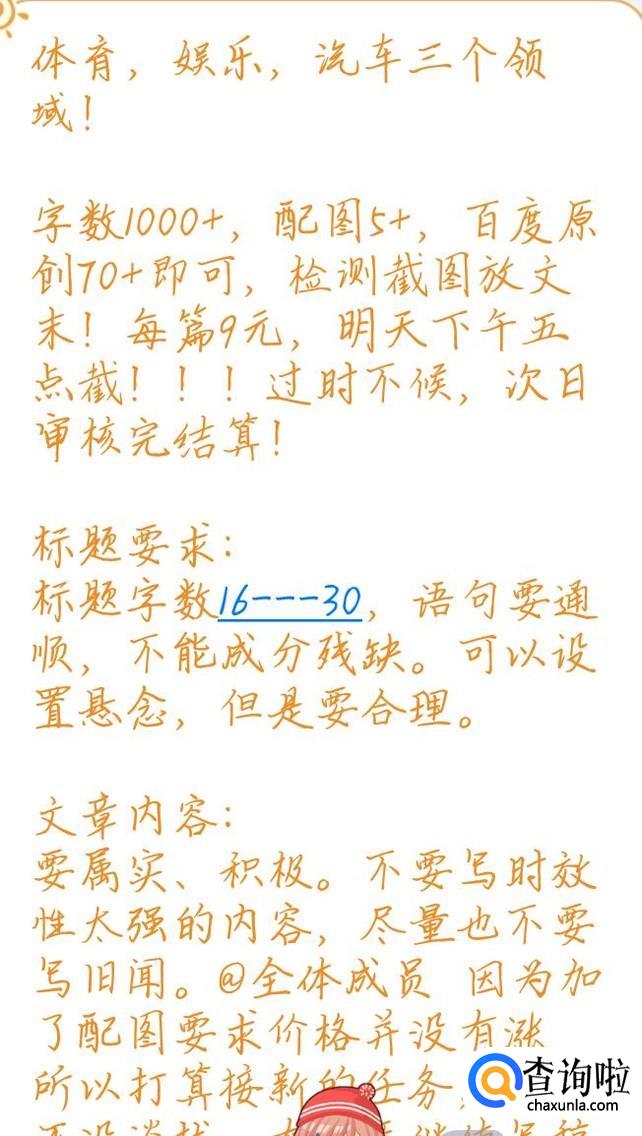 体育，娱乐，汽车三个领
域！
字数1000+，配图5+，百度原
创70+即可，检测截图放文
末！每篇9元，明天下午五
点截！！！过时不候，次日
审核完结算！
标题要求：
标题字数16---30，语句要通
顺，不能成分残缺。可以设
置悬念，但是要合理。
文章内容：
要属实、积极。不要写时效
性太强的内容，尽量也不要
写旧闻。@全体成员 因为加
了配图要求价格并没有涨
所以打算接新的任务，
查询啦
chaxunla.com